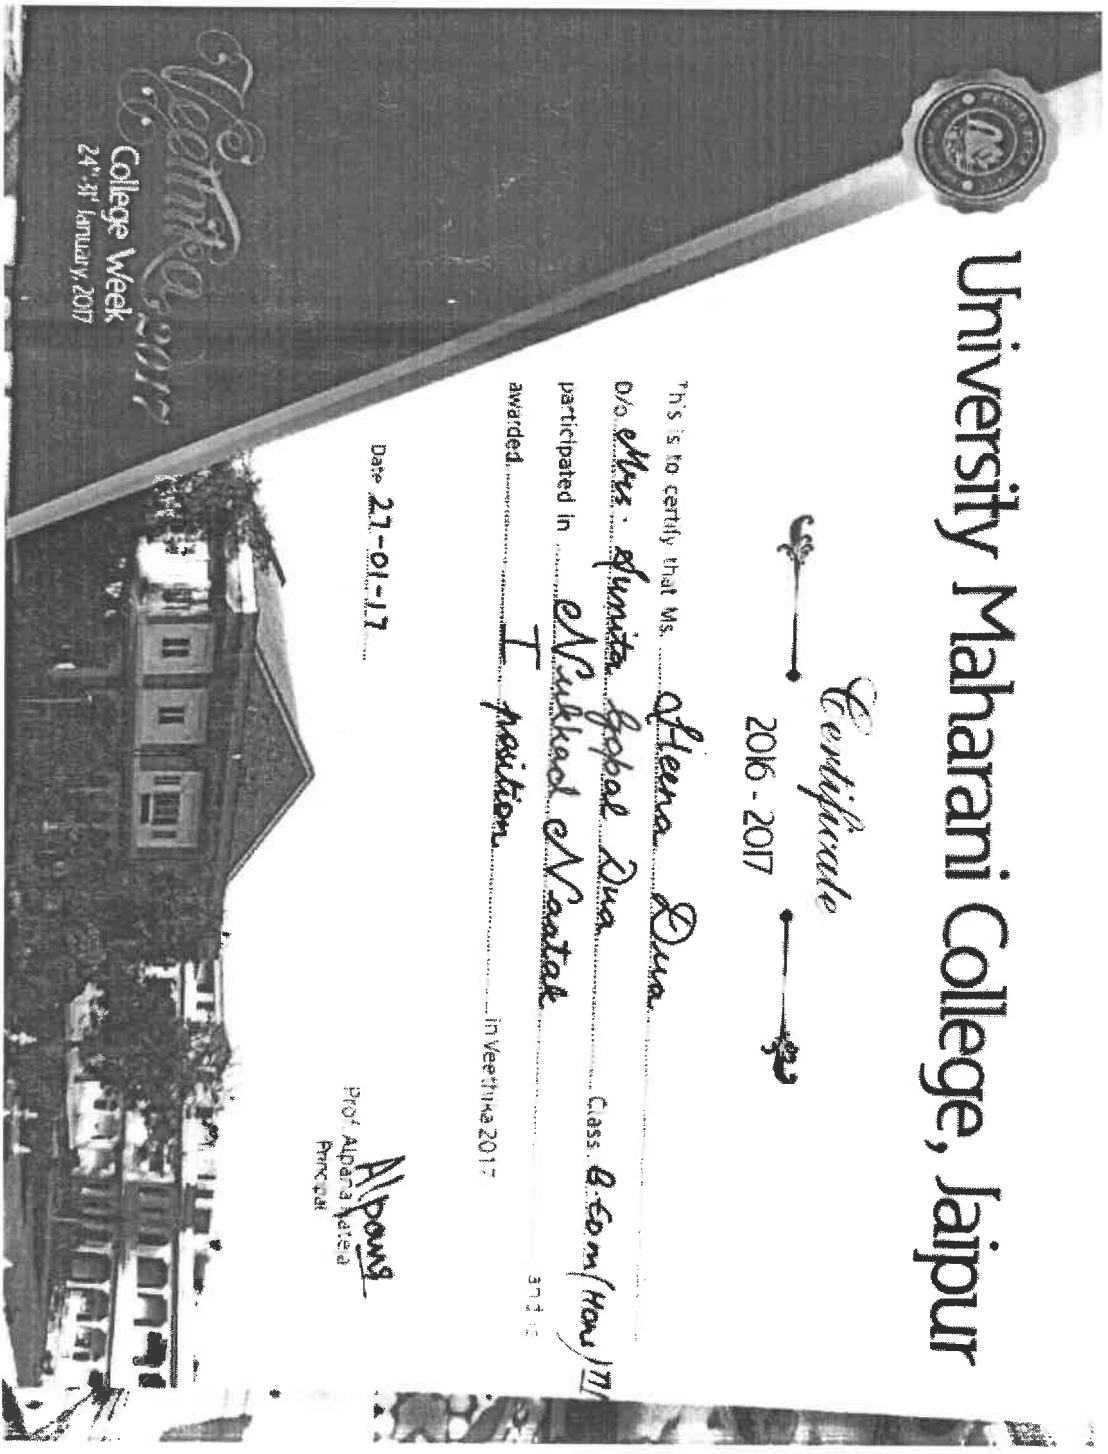 University Maharani College, Jaipur
Certificate
2016 - 2017
This is to certify that Ms. Heena Dua
D/o Mrs. Sunita Gopal Dua Class B.Com (Hons) III
participated in Nukkad Naatak and is
awarded I position in Veethika 2017
Date 27-01-17
Alpana
Prof. Alpana Kateja
Principal
Veethika, 2017
College Week
24th-31st January, 2017